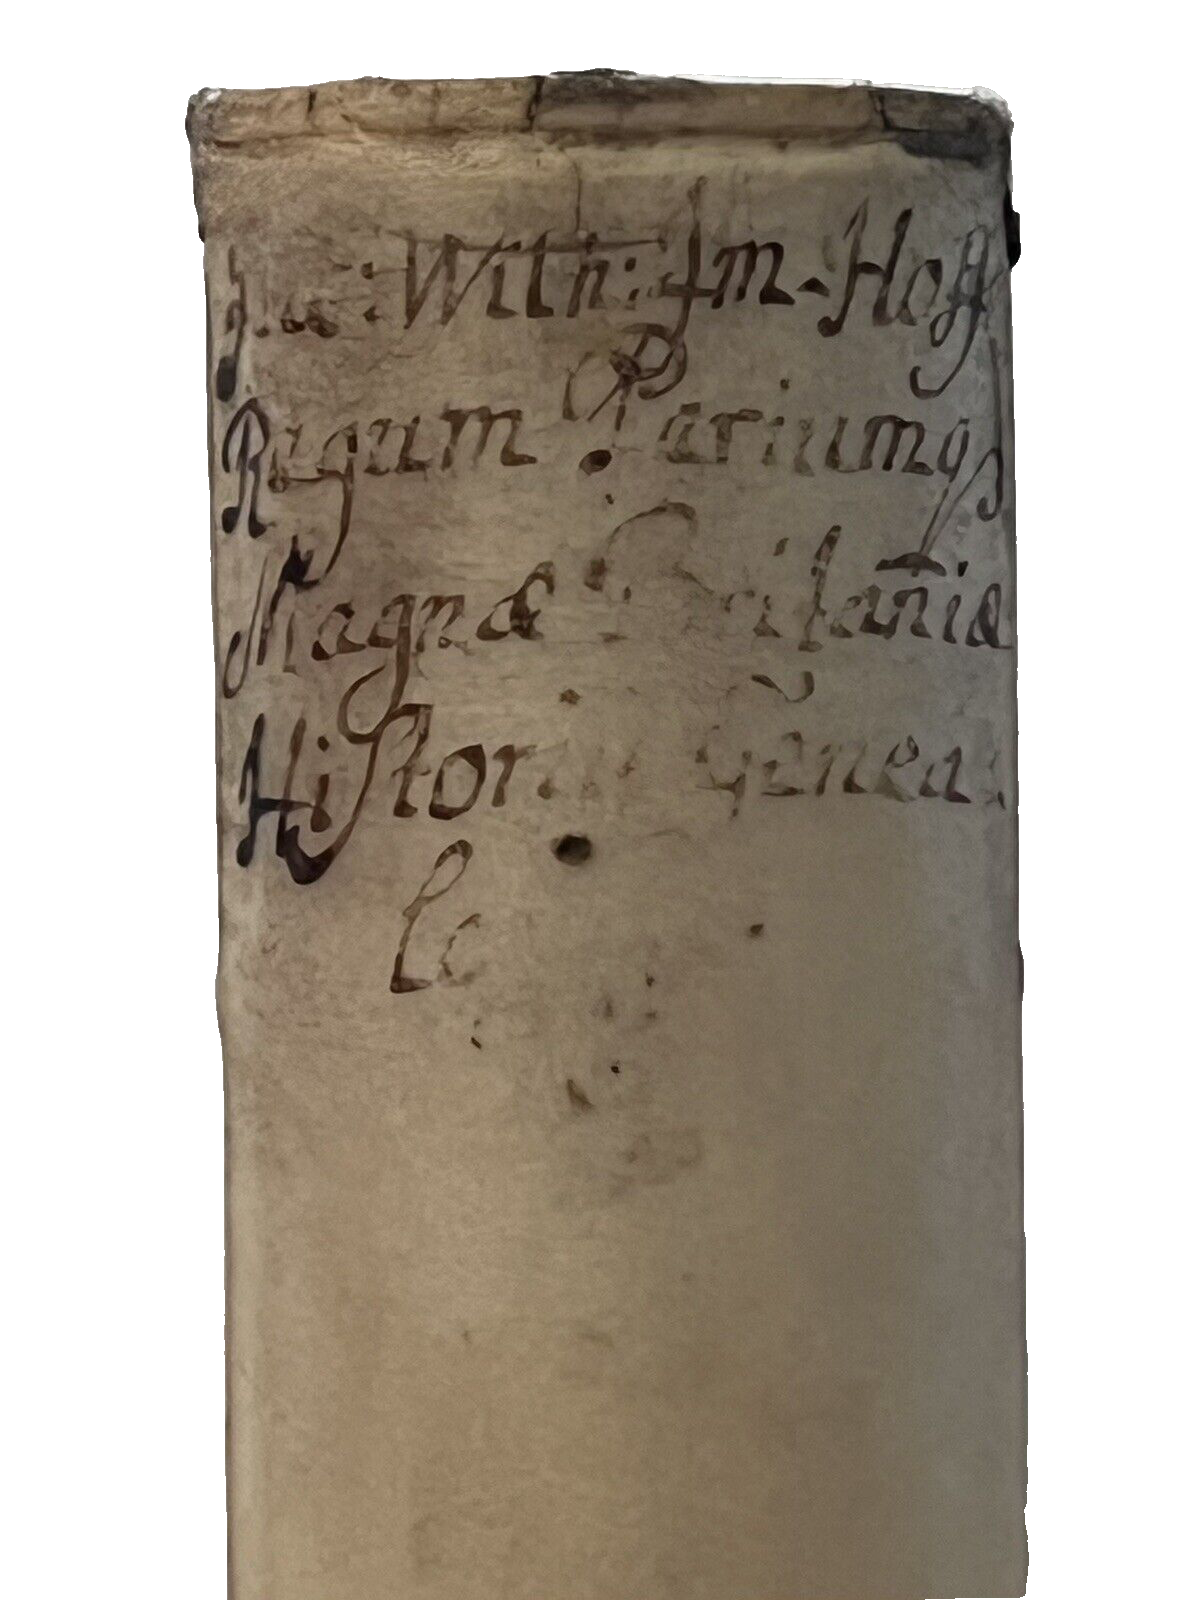 Jac: Wilh: Im-Hoff
Regum Pariumq3
Magnæ Britan̄iæ
Historia Genea
lo